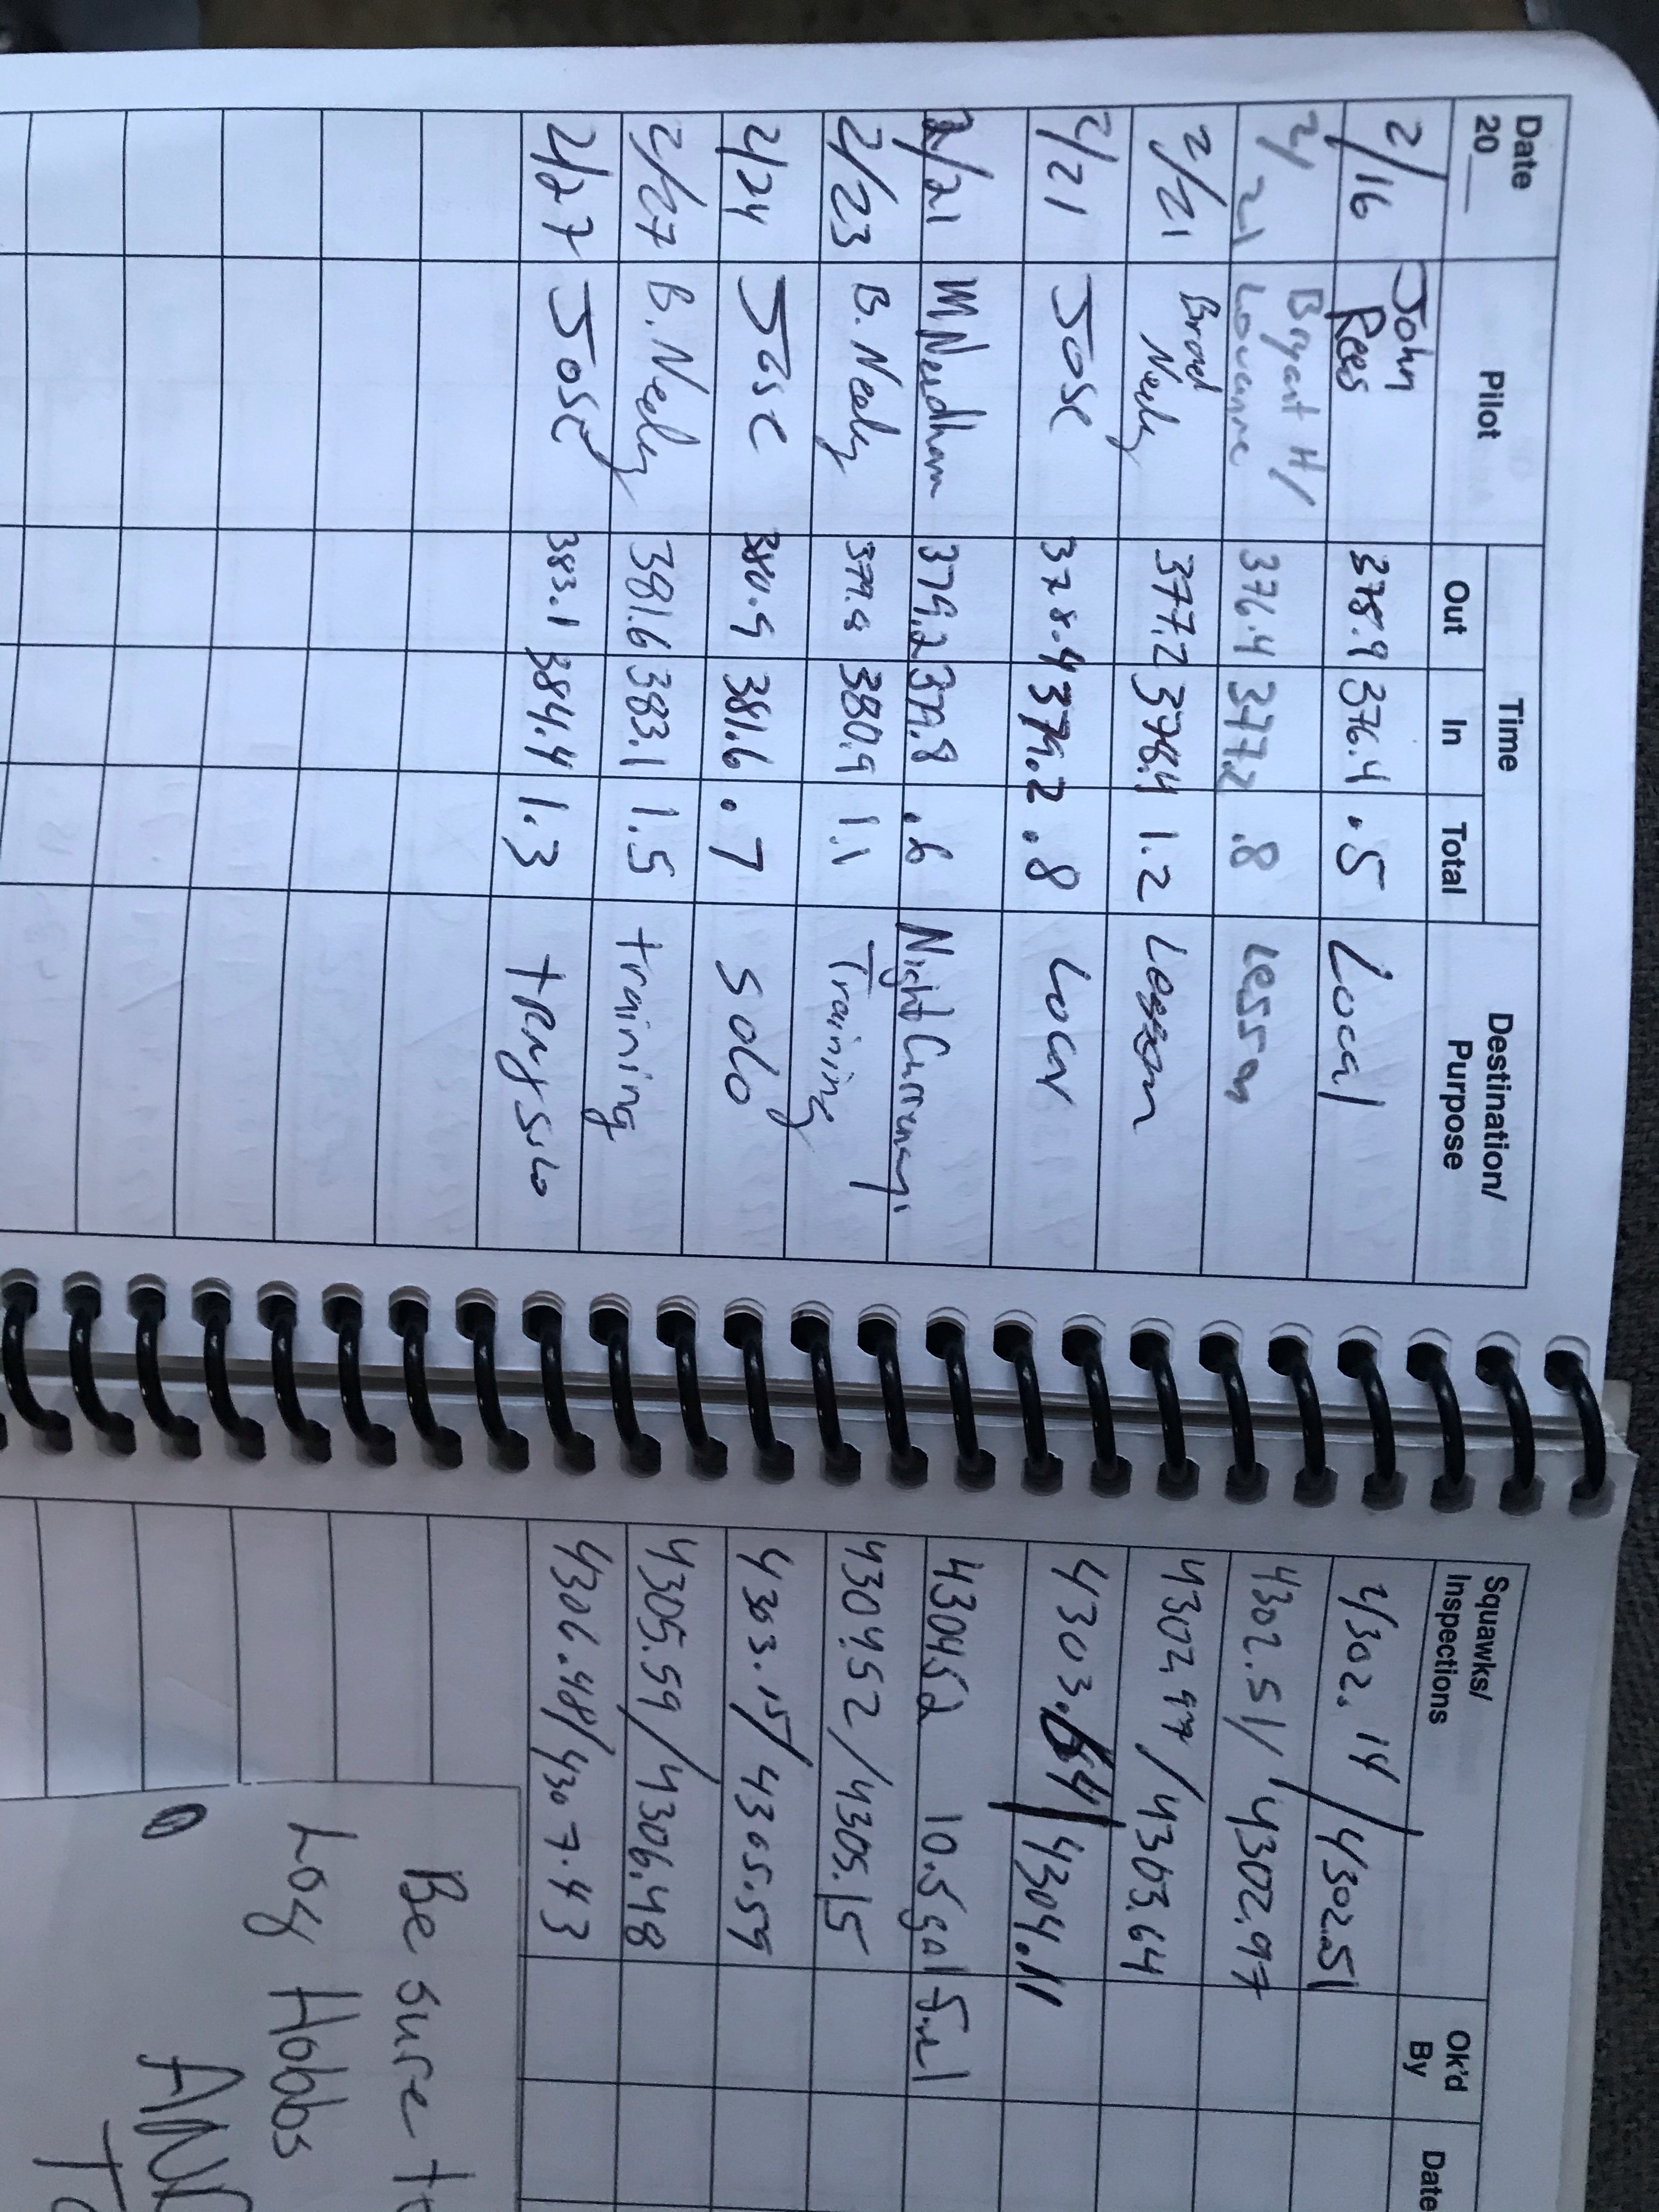 Date 20__ Pilot Time Out In Total Destination/ Purpose Squawks/ Inspections Ok'd By Date
2/16 John Rees 378.9 376.4 .5 Local 4302.14/4302.51
2/21 Bryant H/ Louanne 376.4 377.2 .8 Lesson 4302.51/4302.97
2/21 Brad Neely 377.2 378.4 1.2 Lesson 4302.97/4303.64
2/21 Jose 378.4 379.2 .8 Local 4303.64/4304.11
2/21 MNeedham 379.2 379.8 .6 Night Currency 430452 10.5 gal fuel
2/23 B. Neely 379.8 380.9 1.1 Training 430452/4305.15
2/24 Jose 380.9 381.6 .7 Solo 4303.15/4305.59
2/27 B. Neely 381.6 383.1 1.5 training 4305.59/4306.48
2/27 Jose 383.1 384.4 1.3 4306.48/4307.43
Be sure to
Log Hobbs